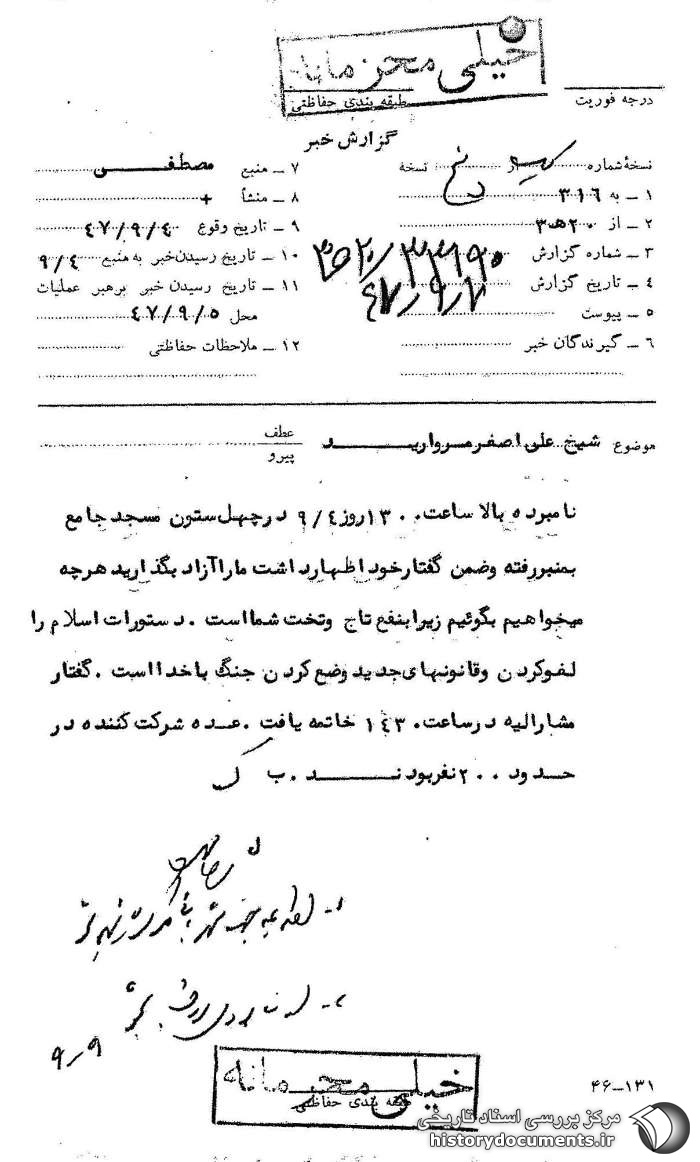 خیلی محرمانه
طبقه بندی حفاظتی
درجه فوریت
گزارش خبر
نسخهٔ شماره از نسخه
۱ ــ به ۳۱۶
۲ ــ از ۲۰ هـ ۳
۳ ــ شماره گزارش
۴ ــ تاریخ گزارش
۵ ــ پیوست
۶ ــ گیرندگان خبر
۷ ــ منبع مصطفی
۸ ــ منشأ +
۹ ــ تاریخ وقوع ۴۷/۹/۴
۱۰ ــ تاریخ رسیدن خبر به منبع ۹/۴
۱۱ ــ تاریخ رسیدن خبر برهبر عملیات
محل ۴۷/۹/۵
۱۲ ــ ملاحظات حفاظتی
موضوع شیخ علی اصغر مروارید
عطف
پیرو
نامبرده بالا ساعت ۱۳۰۰ روز ۹/۴ در چهل ستون مسجد جامع
بمنبر رفته وضمن گفتار خود اظهار داشت ما را آزاد بگذارید هرچه
میخواهیم بگوئیم زیرا بنفع تاج وتخت شما است . دستورات اسلام را
لغو کردن و قانونهای جدید وضع کردن جنگ با خدا است . گفتار
مشارالیه در ساعت ۱۴۳۰ خاتمه یافت . عده شرکت کننده در
حدود ۲۰۰ نفر بودند . ب ک
۹ر۹
خیلی محرمانه
طبقه بندی حفاظتی
۴۶ــ۱۳۱
مرکز بررسی اسناد تاریخی
historydocuments.ir